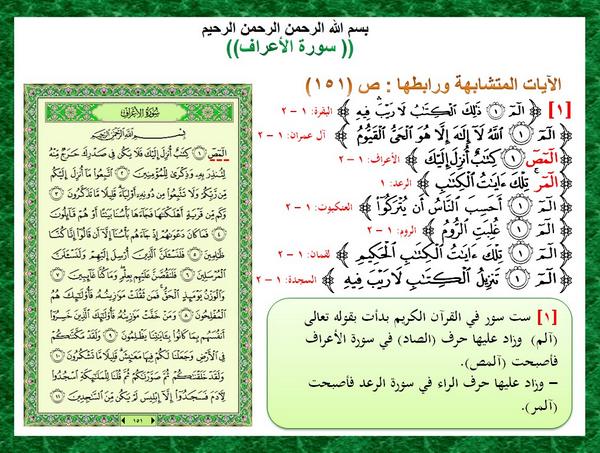 بسم الله الرحمن الرحمن الرحيم
(( سورة الأعراف ))
الآيات المتشابهة ورابطها : ص (١٥١)
[١] ﴿ الٓمٓ ١ ذَٰلِكَ ٱلْكِتَٰبُ لَا رَيْبَ فِيهِ ﴾ البقرة: ١ - ٢
﴿ الٓمٓ ١ ٱللَّهُ لَآ إِلَٰهَ إِلَّا هُوَ ٱلْحَىُّ ٱلْقَيُّومُ ﴾ آل عمران: ١ - ٢
﴿ الٓمٓصٓ ١ كِتَٰبٌ أُنزِلَ إِلَيْكَ ﴾ الأعراف: ١ - ٢
﴿ الٓمٓر تِلْكَ ءَايَٰتُ ٱلْكِتَٰبِ ﴾ الرعد: ١
﴿ الٓمٓ ١ أَحَسِبَ ٱلنَّاسُ أَن يُتْرَكُوٓا۟ ﴾ العنكبوت: ١ - ٢
﴿ الٓمٓ ١ غُلِبَتِ ٱلرُّومُ ﴾ الروم: ١ - ٢
﴿ الٓمٓ ١ تِلْكَ ءَايَٰتُ ٱلْكِتَٰبِ ٱلْحَكِيمِ ﴾ لقمان: ١ - ٢
﴿ الٓمٓ ١ تَنزِيلُ ٱلْكِتَٰبِ لَا رَيْبَ فِيهِ ﴾ السجدة: ١ - ٢
[١] ست سور في القرآن الكريم بدأت بقوله تعالى
(آلم) وزاد عليها حرف (الصاد) في سورة الأعراف
فأصبحت (آلمص).
– وزاد عليها حرف الراء في سورة الرعد فأصبحت
(آلمر).
سُورَةُ الأَعْرَافِ
بِسْمِ ٱللَّهِ ٱلرَّحْمَٰنِ ٱلرَّحِيمِ
الٓمٓصٓ ١ كِتَٰبٌ أُنزِلَ إِلَيْكَ فَلَا يَكُن فِى صَدْرِكَ حَرَجٌ مِّنْهُ
لِتُنذِرَ بِهِۦ وَذِكْرَىٰ لِلْمُؤْمِنِينَ ٢ ٱتَّبِعُوا۟ مَآ أُنزِلَ إِلَيْكُم
مِّن رَّبِّكُمْ وَلَا تَتَّبِعُوا۟ مِن دُونِهِۦٓ أَوْلِيَآءَ قَلِيلًا مَّا تَذَكَّرُونَ ٣
وَكَم مِّن قَرْيَةٍ أَهْلَكْنَٰهَا فَجَآءَهَا بَأْسُنَا بَيَٰتًا أَوْ هُمْ قَآئِلُونَ
٤ فَمَا كَانَ دَعْوَىٰهُمْ إِذْ جَآءَهُم بَأْسُنَآ إِلَّآ أَن قَالُوٓا۟ إِنَّا كُنَّا
ظَٰلِمِينَ ٥ فَلَنَسْـَٔلَنَّ ٱلَّذِينَ أُرْسِلَ إِلَيْهِمْ وَلَنَسْـَٔلَنَّ
ٱلْمُرْسَلِينَ ٦ فَلَنَقُصَّنَّ عَلَيْهِم بِعِلْمٍ وَمَا كُنَّا غَآئِبِينَ ٧
وَٱلْوَزْنُ يَوْمَئِذٍ ٱلْحَقُّ فَمَن ثَقُلَتْ مَوَٰزِينُهُۥ فَأُو۟لَٰٓئِكَ هُمُ
ٱلْمُفْلِحُونَ ٨ وَمَنْ خَفَّتْ مَوَٰزِينُهُۥ فَأُو۟لَٰٓئِكَ ٱلَّذِينَ خَسِرُوٓا۟
أَنفُسَهُم بِمَا كَانُوا۟ بِـَٔايَٰتِنَا يَظْلِمُونَ ٩ وَلَقَدْ مَكَّنَّٰكُمْ
فِى ٱلْأَرْضِ وَجَعَلْنَا لَكُمْ فِيهَا مَعَٰيِشَ قَلِيلًا مَّا تَشْكُرُونَ ١٠
وَلَقَدْ خَلَقْنَٰكُمْ ثُمَّ صَوَّرْنَٰكُمْ ثُمَّ قُلْنَا لِلْمَلَٰٓئِكَةِ ٱسْجُدُوا۟
لِـَٔادَمَ فَسَجَدُوٓا۟ إِلَّآ إِبْلِيسَ لَمْ يَكُن مِّنَ ٱلسَّٰجِدِينَ ١١
١٥١